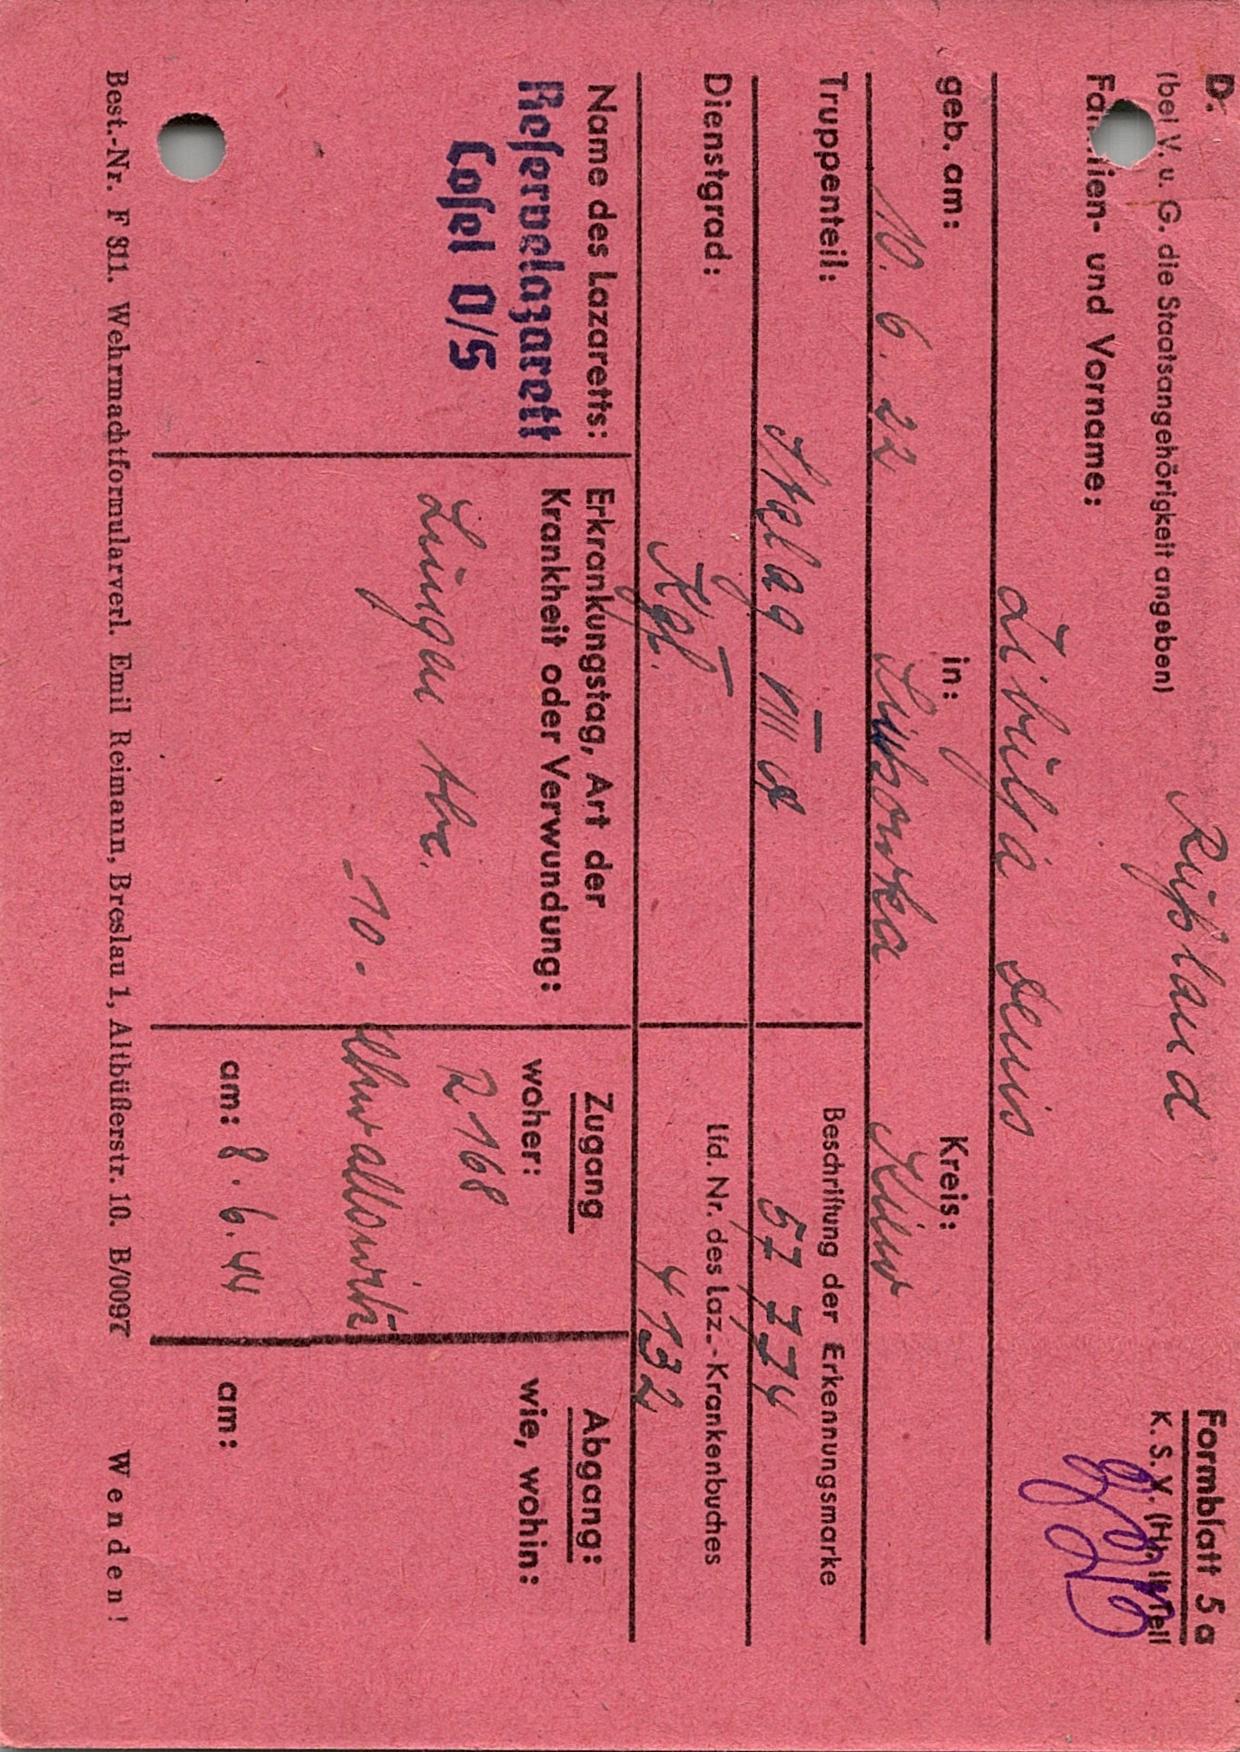 D.
Formblatt 5 a
(bei V. u. G. die Staatsangehörigkeit angeben) Rußland
K. S. V. (H). II. Teil
Familien- und Vorname:
Zibulsa Denis
geb. am: 10. 6. 22 in: Kreis: Kiew
Truppenteil: Stalag VIII B
Beschriftung der Erkennungsmarke
57 774
Dienstgrad: Kgf.
Lfd. Nr. des Laz.-Krankenbuches
4132
Name des Lazaretts:
Reservelazarett
Cosel O/S
Erkrankungstag, Art der
Krankheit oder Verwundung:
Lungen tbc.
-10.-
Zugang
woher:
R 168
am: 8. 6. 44
Abgang:
wie, wohin:
am:
Best.-Nr. F 311. Wehrmachtformularverl. Emil Reimann, Breslau 1, Altbüßerstr. 10. B/0097 Wenden!